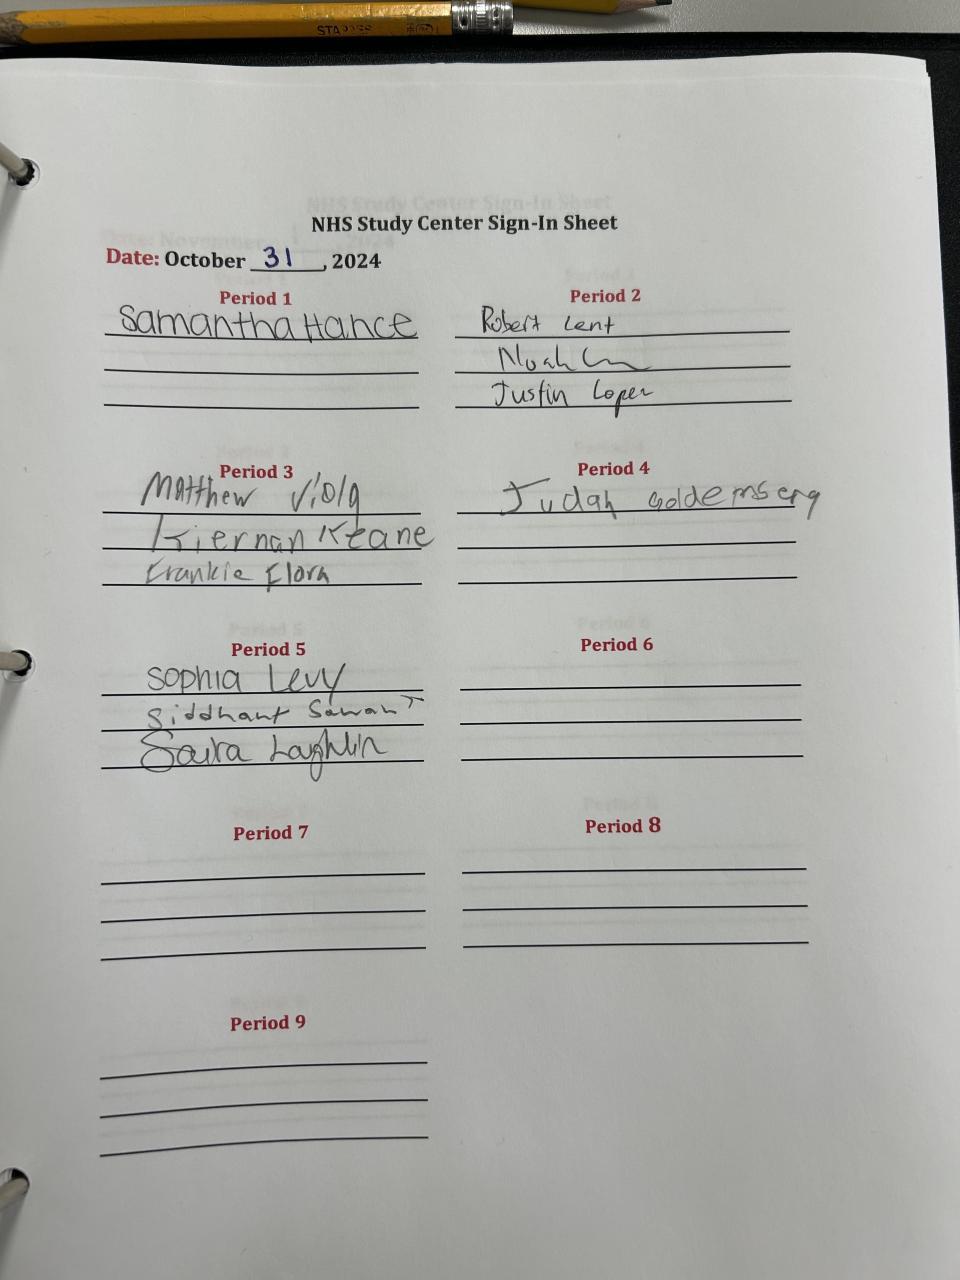 NHS Study Center Sign-In Sheet
Date: October 31, 2024
Period 1
Samantha Hance
Period 2
Robert Lent
Noah
Justin Loper
Period 3
Matthew Viola
Kiernan Keane
Frankie Flora
Period 4
Judah Goldemserg
Period 5
Sophia Levy
Siddhant Sawant
Saira Laughlin
Period 6
Period 7
Period 8
Period 9